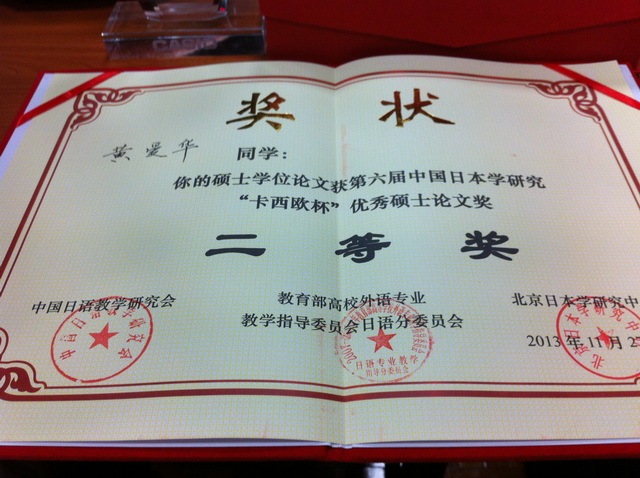 奖 状
黄曼华 同学：
你的硕士学位论文获第六届中国日本学研究
“卡西欧杯”优秀硕士论文奖
二 等 奖
中国日语教学研究会
教育部高校外语专业
教学指导委员会日语分委员会
北京日本学研究中
2013年11月2
日语专业教学
指导分委员会